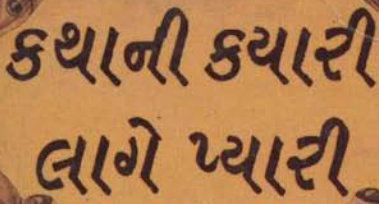 કથાની કયારી
લાગે પ્યારી